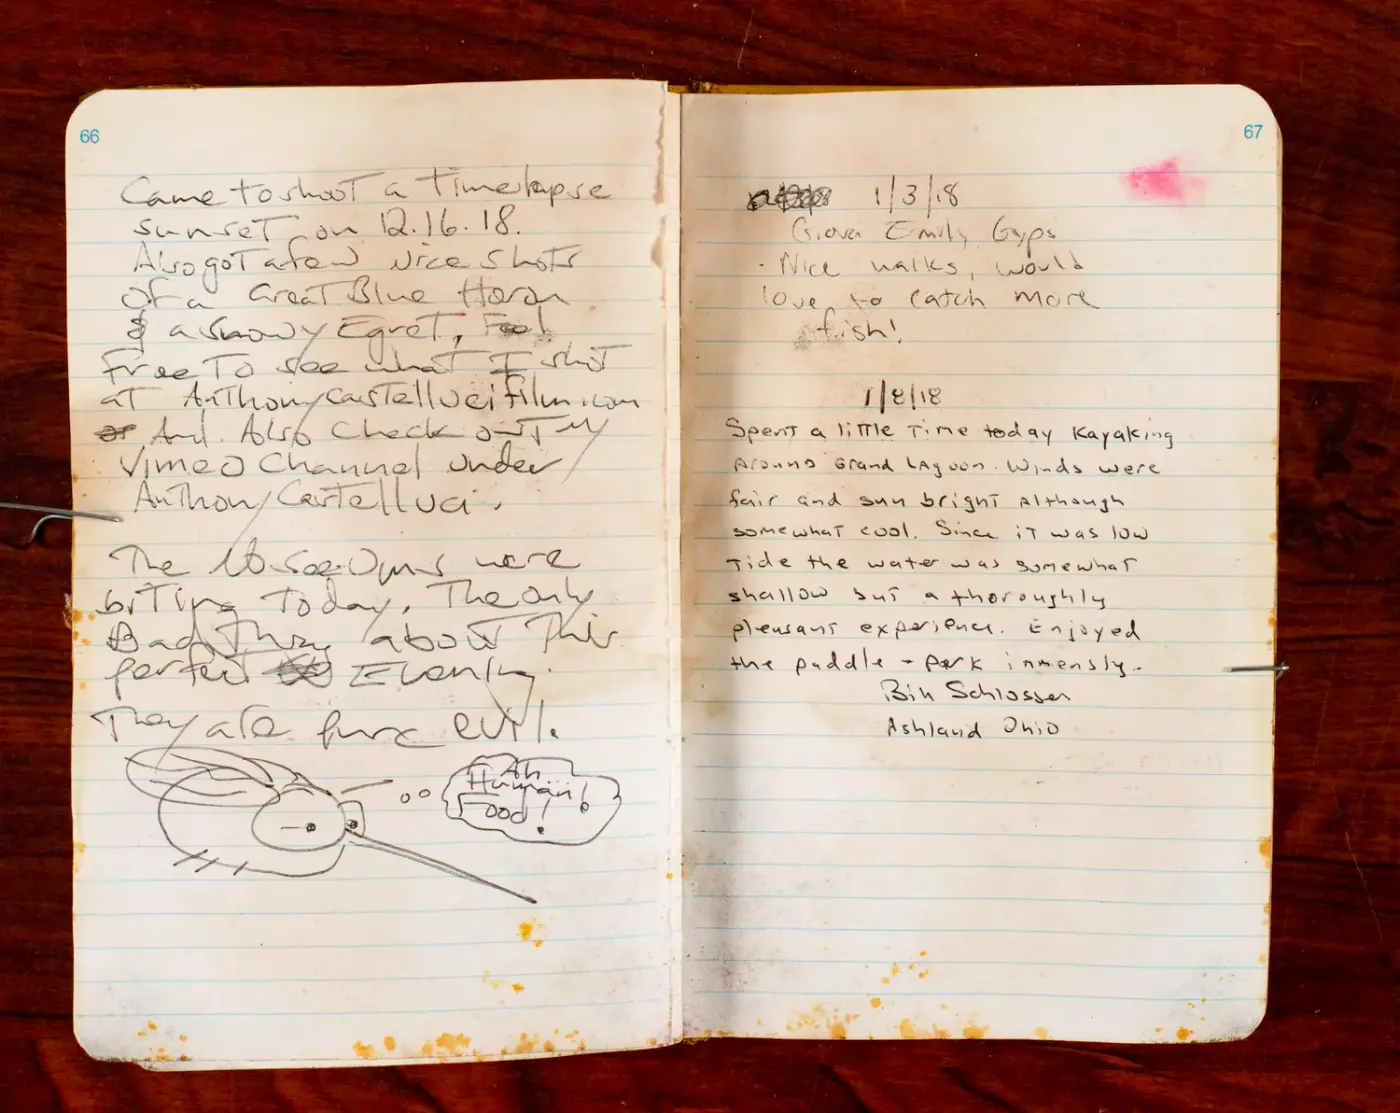 66
Came to shoot a Timelapse
sunset on 12.16.18.
Also got a few Nice shots
of a Great Blue Heron
& a snowy Egret, Feel
Free To see what I shot
at AnthonyCastelluccifilm.com
or And Also Check out my
Vimeo Channel under
Anthony Castellucci.
The No-See-Ums were
biting Today. The only
Bad Thing about This
perfect Evening.
They are pure evil.
Ah
Human
Food!!
67
1/3/18
Giova Emily Gyps
- Nice walks, would
love to catch more
fish!
1/8/18
Spent a little Time today Kayaking
Around Grand Lagoon. Winds were
fair and sun bright Although
somewhat cool. Since it was low
Tide the water was somewhat
shallow but a thoroughly
pleasant experience. Enjoyed
the puddle-park immensly.
Schlosser
Ashland Ohio